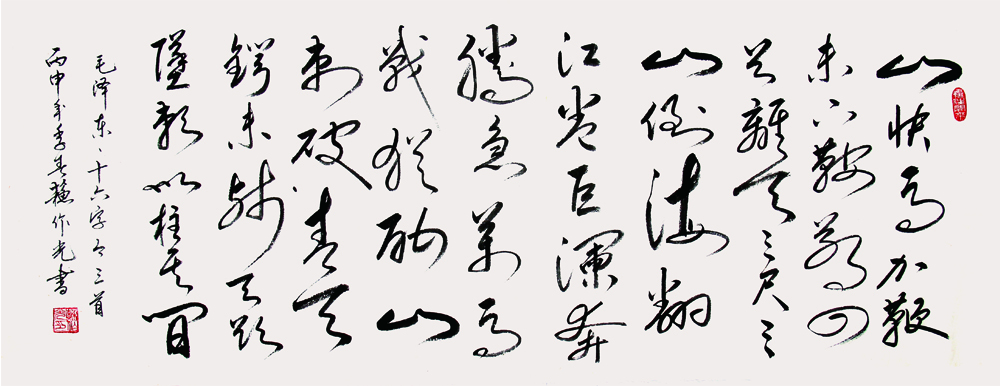 山快马加鞭
未下鞍驚回
首離天三尺三
山倒海翻
江卷巨澜奔
腾急万马
战犹酣山
刺破青天
锷未残天欲
墮赖以柱其间
毛泽东、十六字令三首
丙申年季春蘇作光书